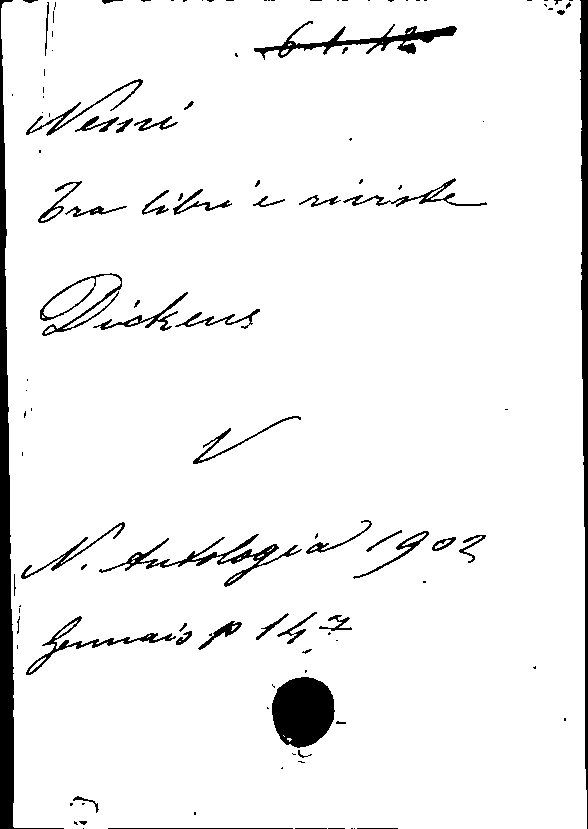 6. 1. 42
Nemi
Tra libri e riviste
Dickens
V
N. Antologia 1902
Gennaio p 147